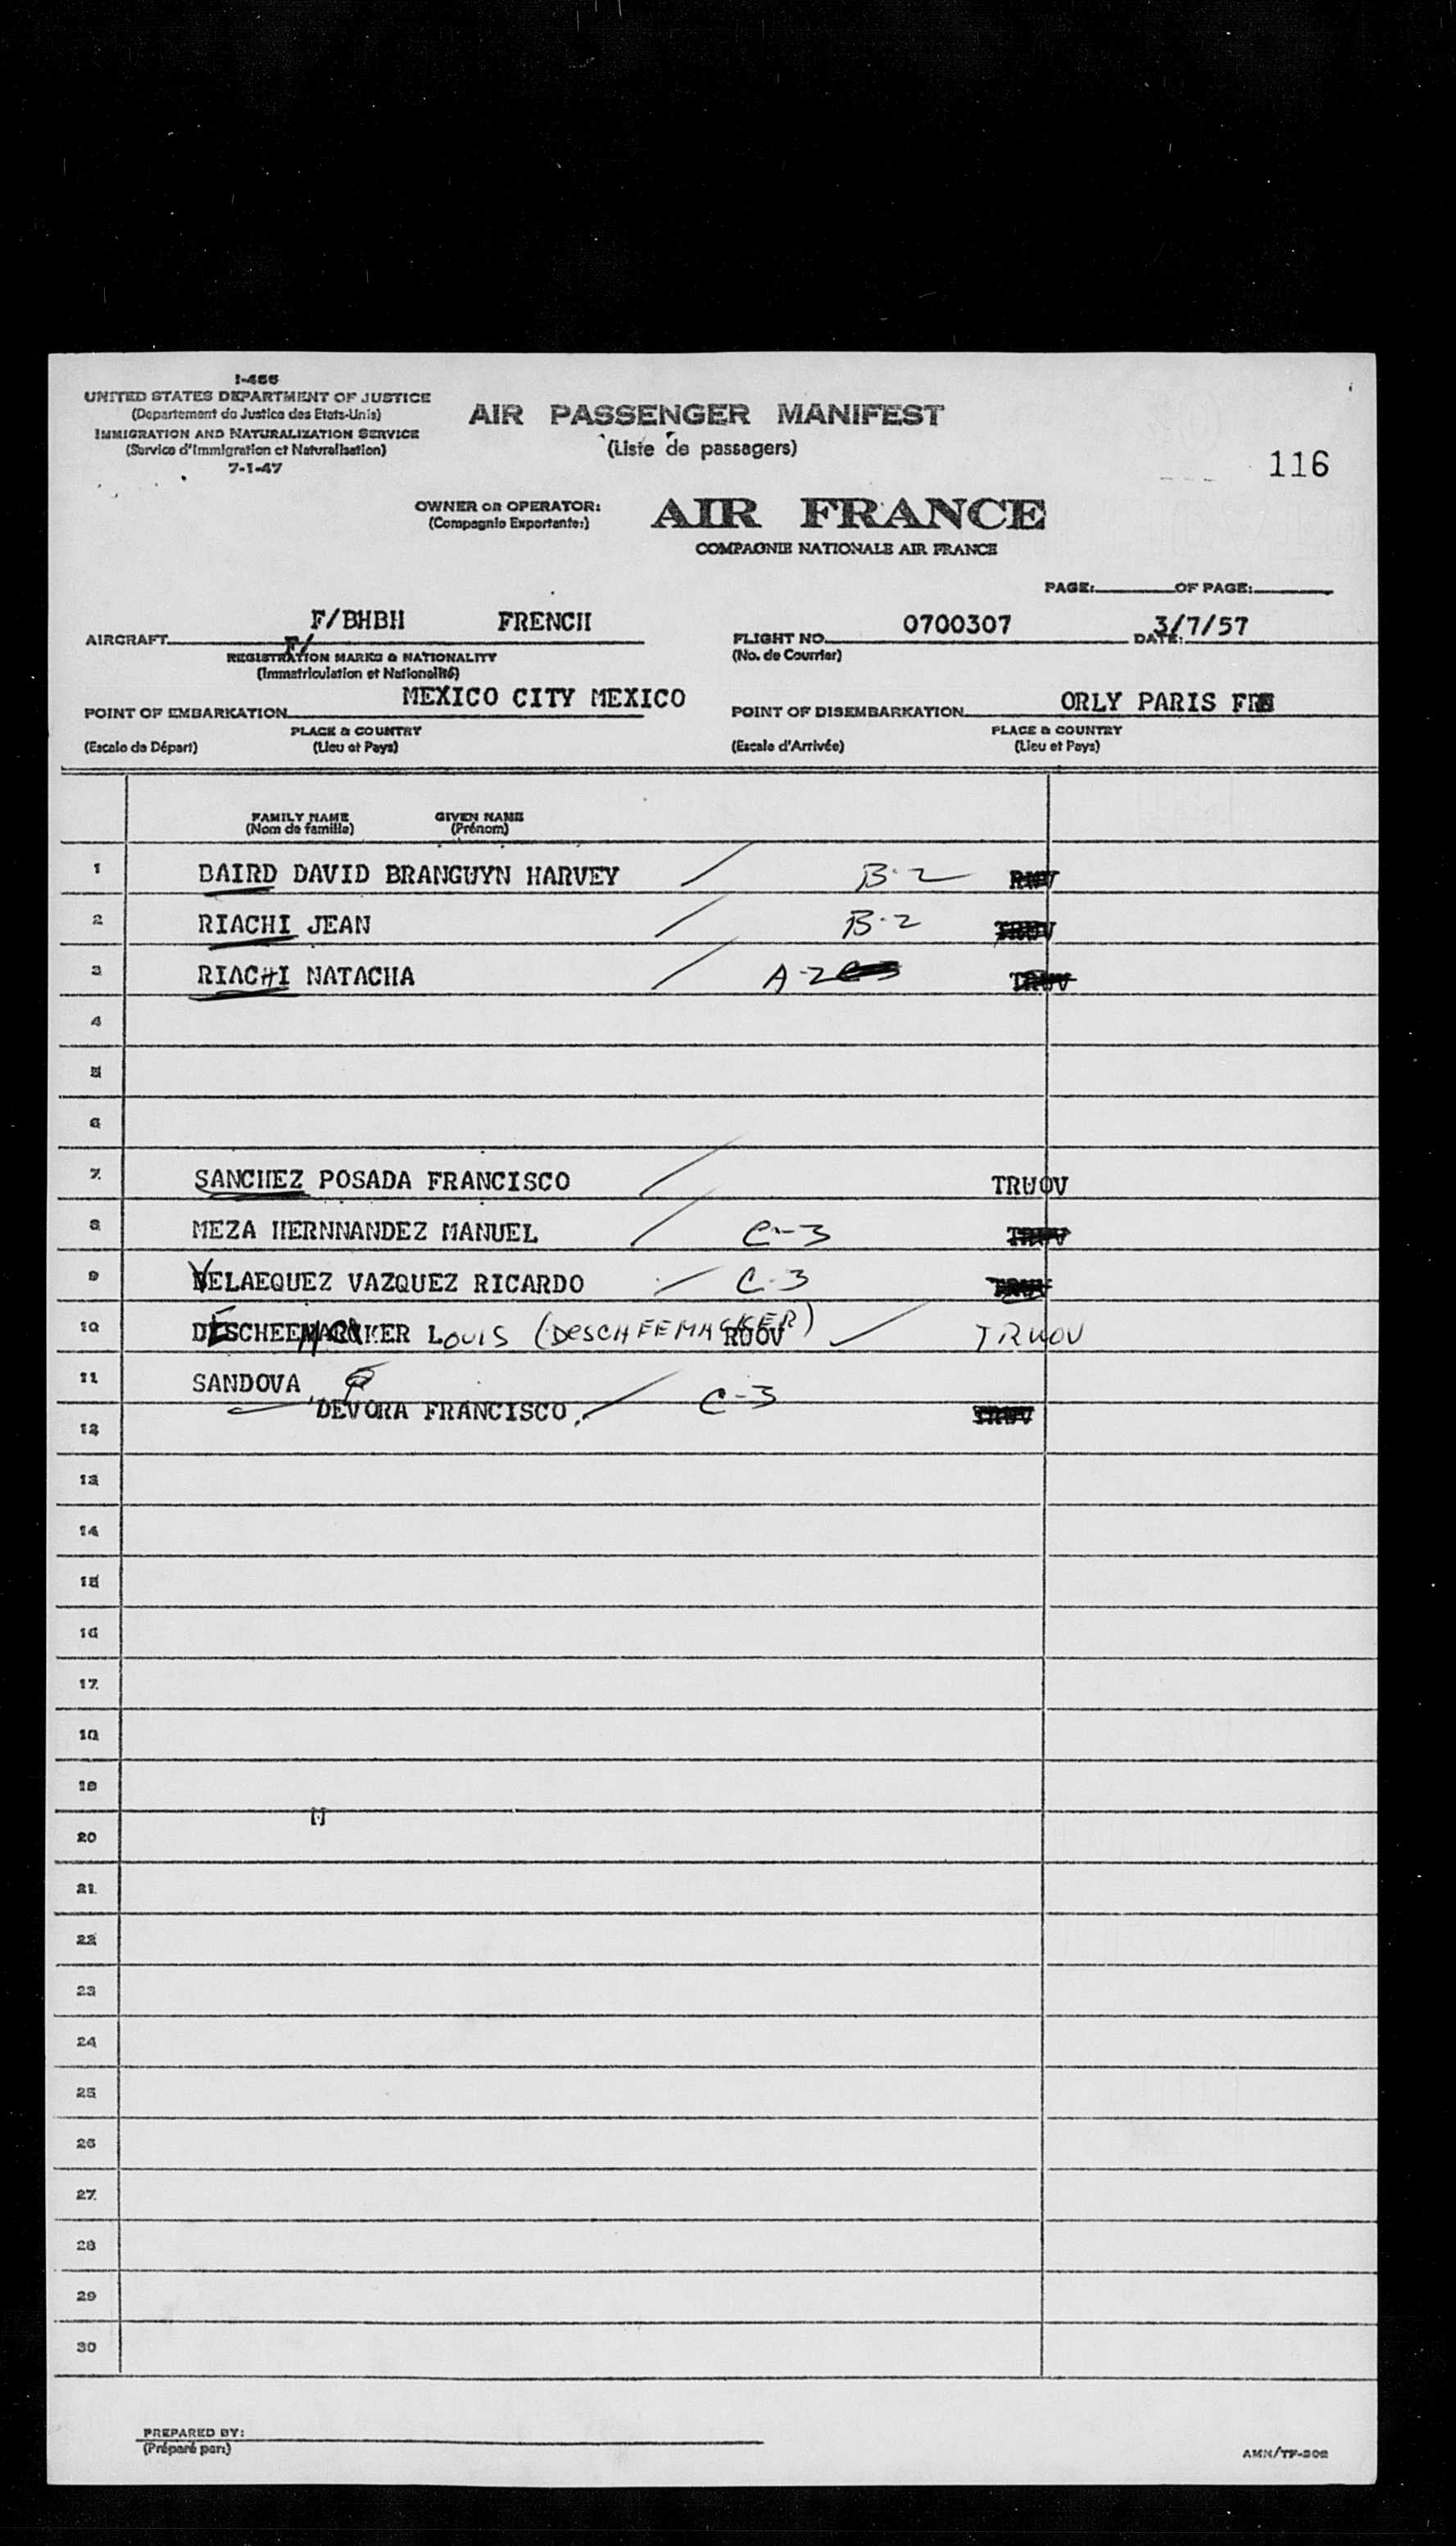 I-466
UNITED STATES DEPARTMENT OF JUSTICE
(Departement de Justice des Etats-Unis)
IMMIGRATION AND NATURALIZATION SERVICE
(Service d'Immigration et Naturalisation)
7-1-47
AIR PASSENGER MANIFEST
(Liste de passagers)
116
OWNER OR OPERATOR: AIR FRANCE
(Compagnie Exportante:)
COMPAGNIE NATIONALE AIR FRANCE
PAGE: OF PAGE:
AIRCRAFT F/BHBH FRENCH
F/
REGISTRATION MARKS & NATIONALITY
(Immatriculation et Nationalité)
FLIGHT NO. 0700307 DATE: 3/7/57
(No. de Courrier)
POINT OF EMBARKATION MEXICO CITY MEXICO
PLACE & COUNTRY
(Escale de Départ) (Lieu et Pays)
POINT OF DISEMBARKATION ORLY PARIS
PLACE & COUNTRY
(Escale d'Arrivée) (Lieu et Pays)
FAMILY NAME GIVEN NAME
(Nom de famille) (Prénom)
1 BAIRD DAVID BRANGUYN HARVEY B-2
2 RIACHI JEAN B-2
3 RIACHI NATACHA A-2
4
5
6
7 SANCHEZ POSADA FRANCISCO TRUOV
8 MEZA HERNNANDEZ MANUEL C-3
9 VELAEQUEZ VAZQUEZ RICARDO C-3
10 LOUIS (DESCHEEMACKER) RUOV TRUOV
11 SANDOVA
DEVORA FRANCISCO C-3
12
13
14
15
16
17
18
19
20
21
22
23
24
25
26
27
28
29
30
PREPARED BY:
(Préparé par:)
AMN/TF-302